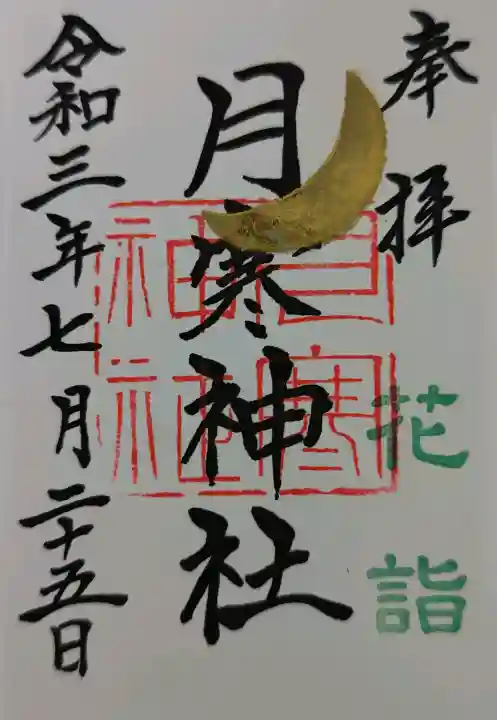 奉拝
花詣
月寒神社
月寒神社
令和三年七月二十五日